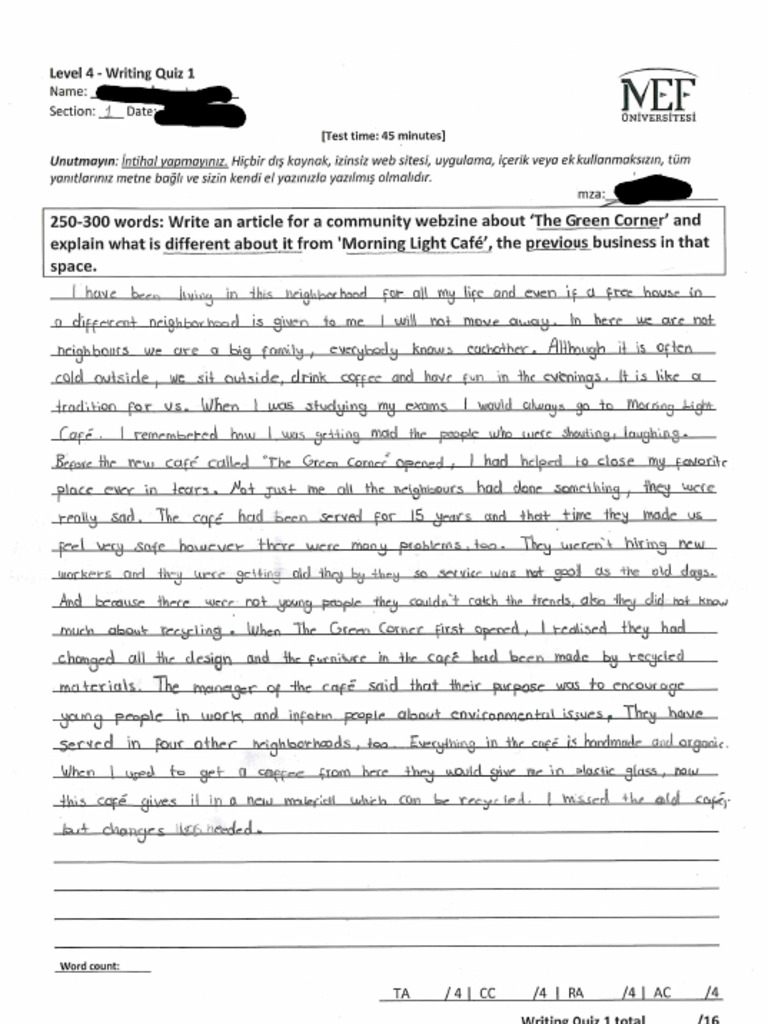 Level 4 - Writing Quiz 1
Name:
Section: 1 Date:
MEF
ÜNİVERSİTESİ
[Test time: 45 minutes]
Unutmayın: İntihal yapmayınız. Hiçbir dış kaynak, izinsiz web sitesi, uygulama, içerik veya ek kullanmaksızın, tüm
yanıtlarınız metne bağlı ve sizin kendi el yazınızla yazılmış olmalıdır.
mza:
250-300 words: Write an article for a community webzine about ‘The Green Corner’ and
explain what is different about it from 'Morning Light Café’, the previous business in that
space.
I have been living in this neighborhood for all my life and even if a free house in
a different neighborhood is given to me I will not move away. In here we are not
neighbours we are a big family, everybody knows eachother. Although it is often
cold outside, we sit outside, drink coffee and have fun in the evenings. It is like a
tradition for us. When I was studying my exams I would always go to Morning Light
Café. I remembered how I was getting mad the people who were shouting, laughing.
Before the new café called "The Green Corner" opened, I had helped to close my favorite
place ever in tears. Not just me all the neighbours had done something, they were
really sad. The café had been served for 15 years and that time they made us
feel very safe however there were many problems, too. They weren't hiring new
workers and they were getting old they by they so service was not good as the old days.
And because there were not young people they couldn't catch the trends, also they did not know
much about recycling. When The Green Corner first opened, I realised they had
changed all the design and the furniture in the café had been made by recycled
materials. The manager of the café said that their purpose was to encourage
young people in work and inform people about environmental issues. They have
served in four other neighborhoods, too. Everything in the café is handmade and organic.
When I used to get a coffee from here they would give me in plastic glass, now
this café gives it in a new material which can be recycled. I missed the old café,
but changes needed.
Word count:
TA /4 | CC /4 | RA /4 | AC /4
Writing Quiz 1 total /16